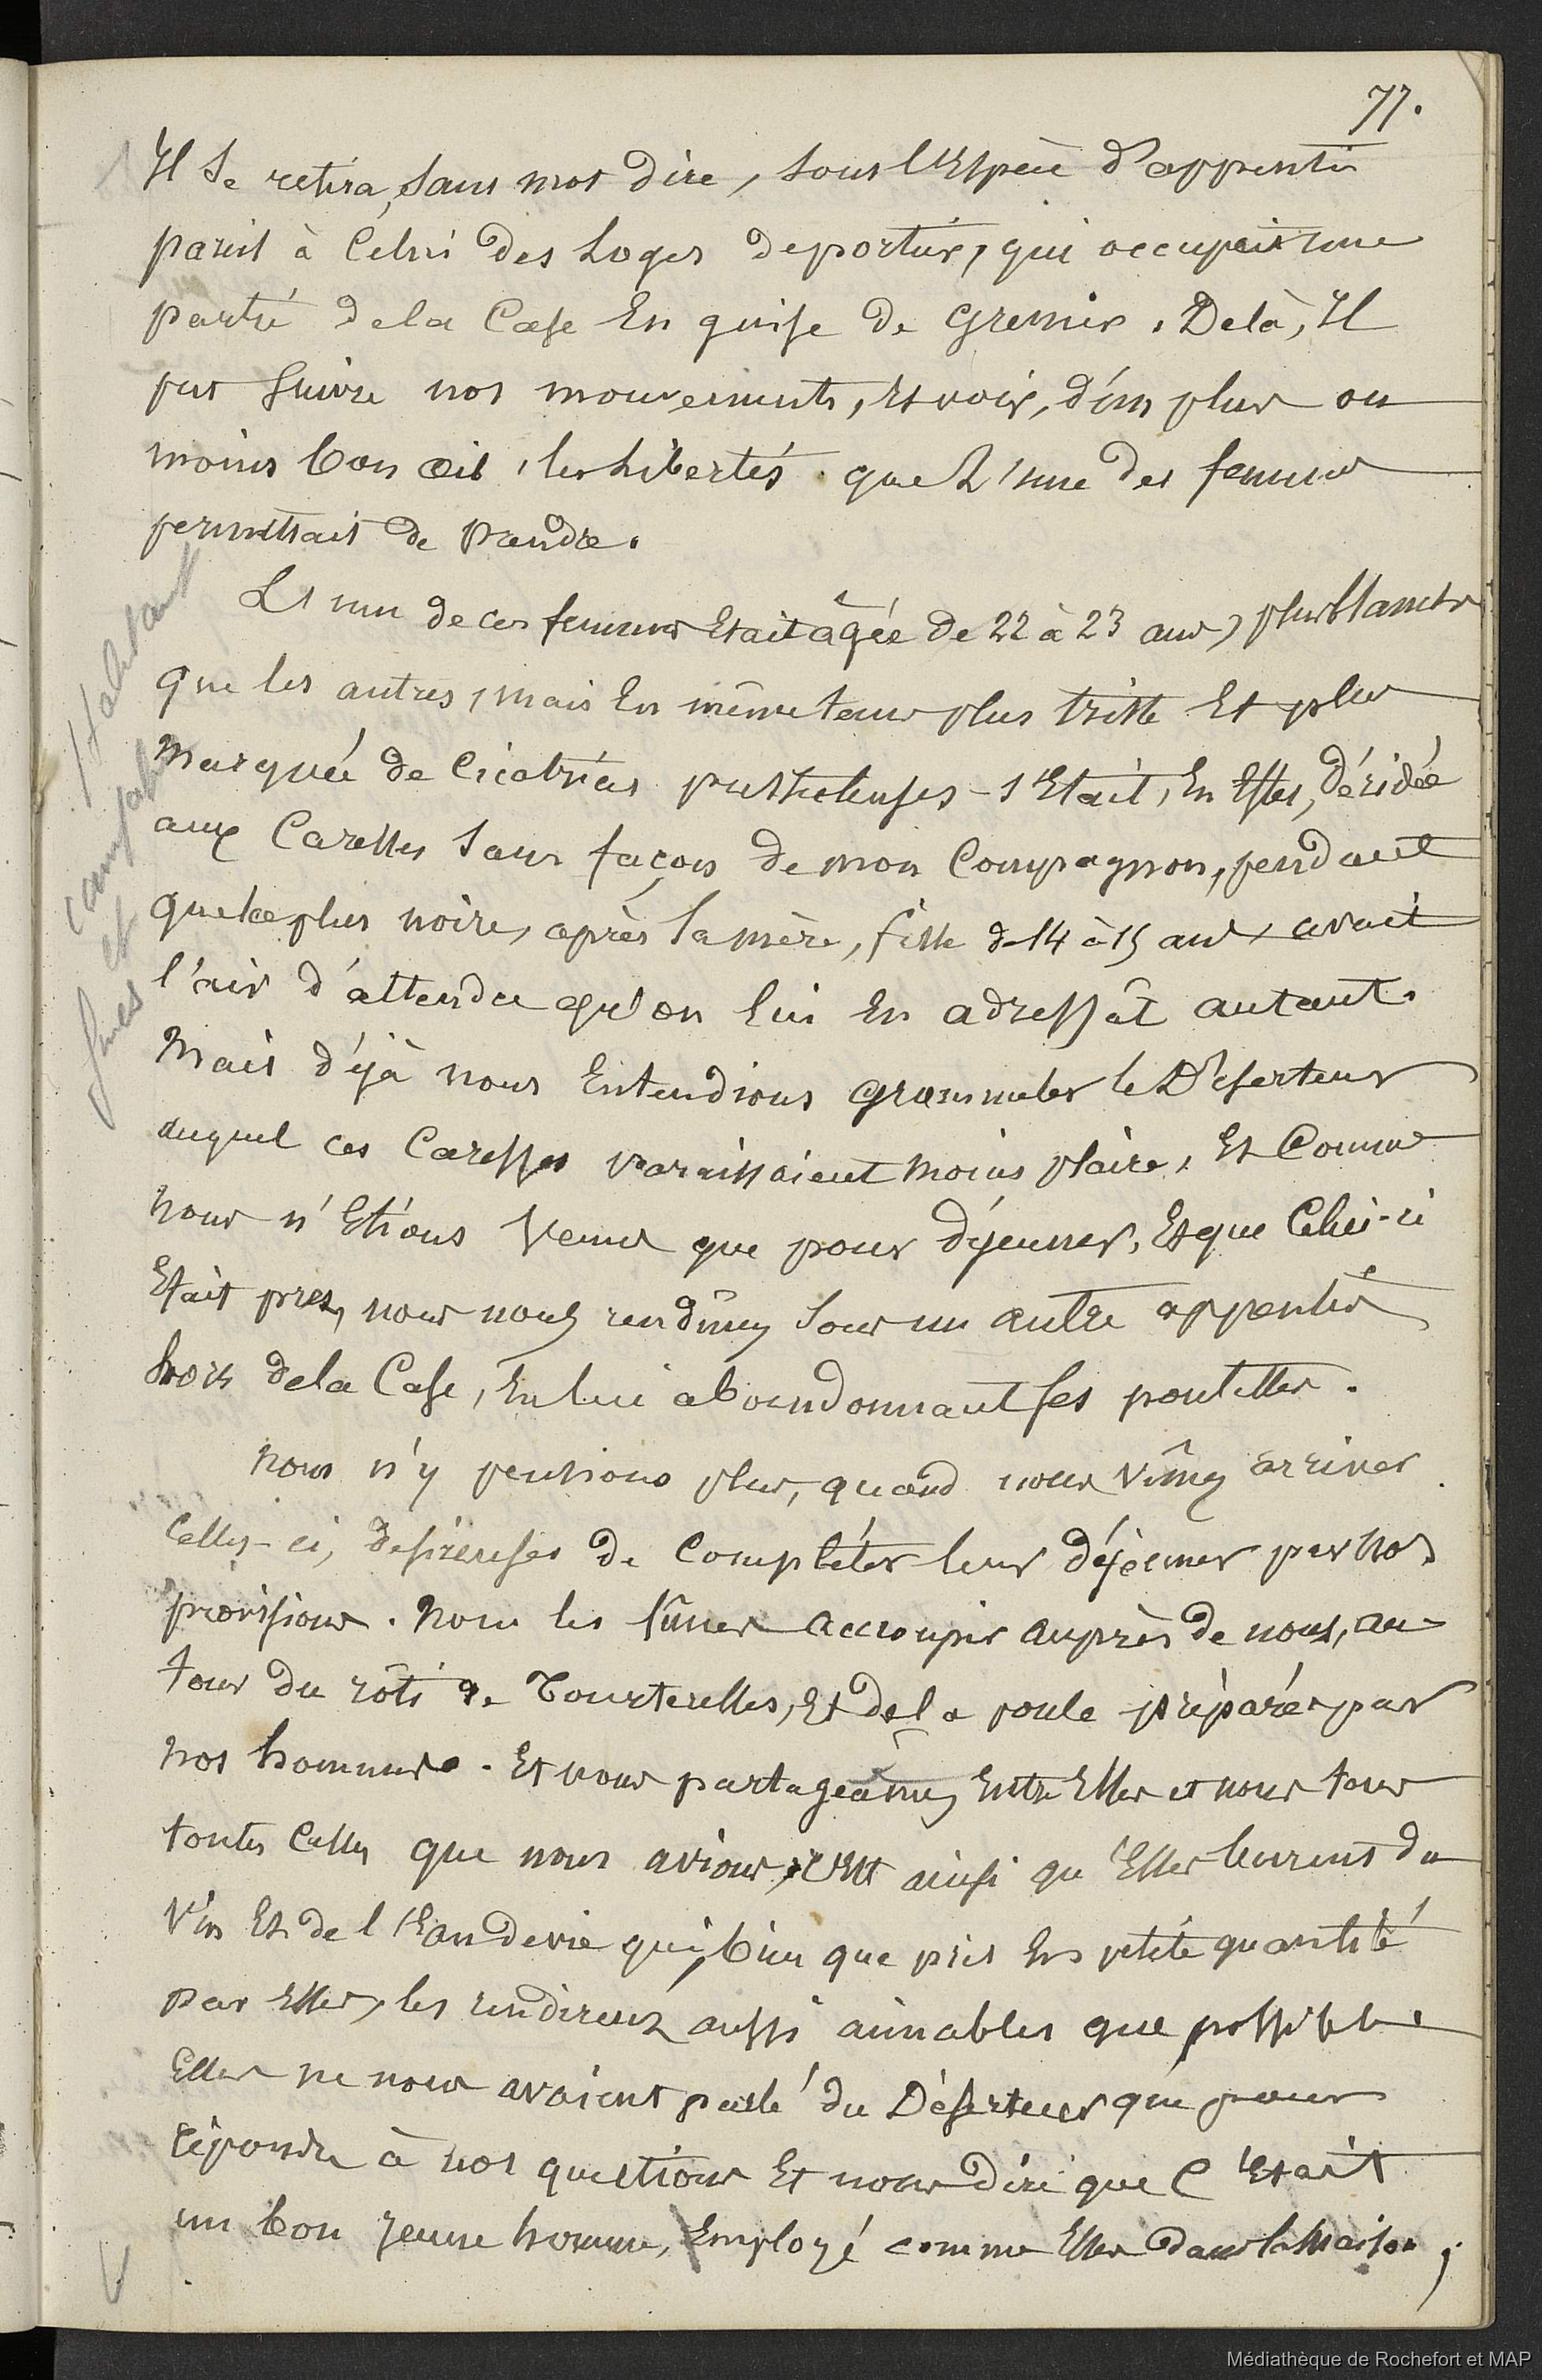 77.
Il se retira, sans mot dire, sous l'Espèce d'appentis
pareil à Celui des Loges deportiers, qui occupait une
partie dela Case En guise de grenier. Delà, Il
put suivre nos mouvements, Et voir, d'un plus ou
moins bon œil, les Libertés que L'une des femmes
permettait de prendre.
L'une de ces femmes Etait âgée de 22 à 23 ans, plus blanche
que les autres, mais En même tems plus triste Et plus
marquée de Cicatrices pustuleuses - s'Etait, En Effet, déridée
aux Caresses sans façons de mon Compagnon, pendant
que la plus noire, après la mère, fille de 14 à 15 ans, avait
l'air d'attendre qu'on lui En adressât autant.
Mais déjà nous Entendions grommeler le Déserteur
auquel ces Caresses paraissaient moins plaire, Et Comme
nous n'Etions venus que pour déjeuner, Et que Celui-ci
Etait pret, nous nous rendîmes sous un autre appentis
hors dela Case, En lui abandonnant ses poulettes.
Nous n'y pensions plus, quand nous vîmes arriver
Celles-ci, desireuses de Compléter leur déjeuner par nos
provisions. Nous les fîmes accroupir auprès de nous, au-
tour du rôti de Tourterelles, Et dela poule préparés par
nos hommes. Et nous partageâmes Entre Elles et nous tous
toutes Celles que nous avions, C'Est ainsi qu'Elles burent du
Vin Et de l'Eau de vie qui, bien que pris En petite quantité
par Elles, les rendirent aussi aimables que possible.
Elles ne nous avaient parlé du Déserteur que pour
répondre à nos questions Et nous dire que C'Etait
un bon jeune homme, Employé comme Elles dans la Maison ;
Habitant
campagne
et
Médiathèque de Rochefort et MAP